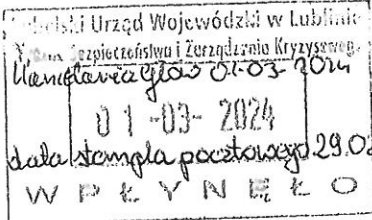 Lubelski Urząd Wojewódzki w Lublinie
Bezpieczeństwa i Zarządzania Kryzysowego
01-03-2024
01-03-2024
data stempla pocztowego 29.02
WPŁYNĘŁO